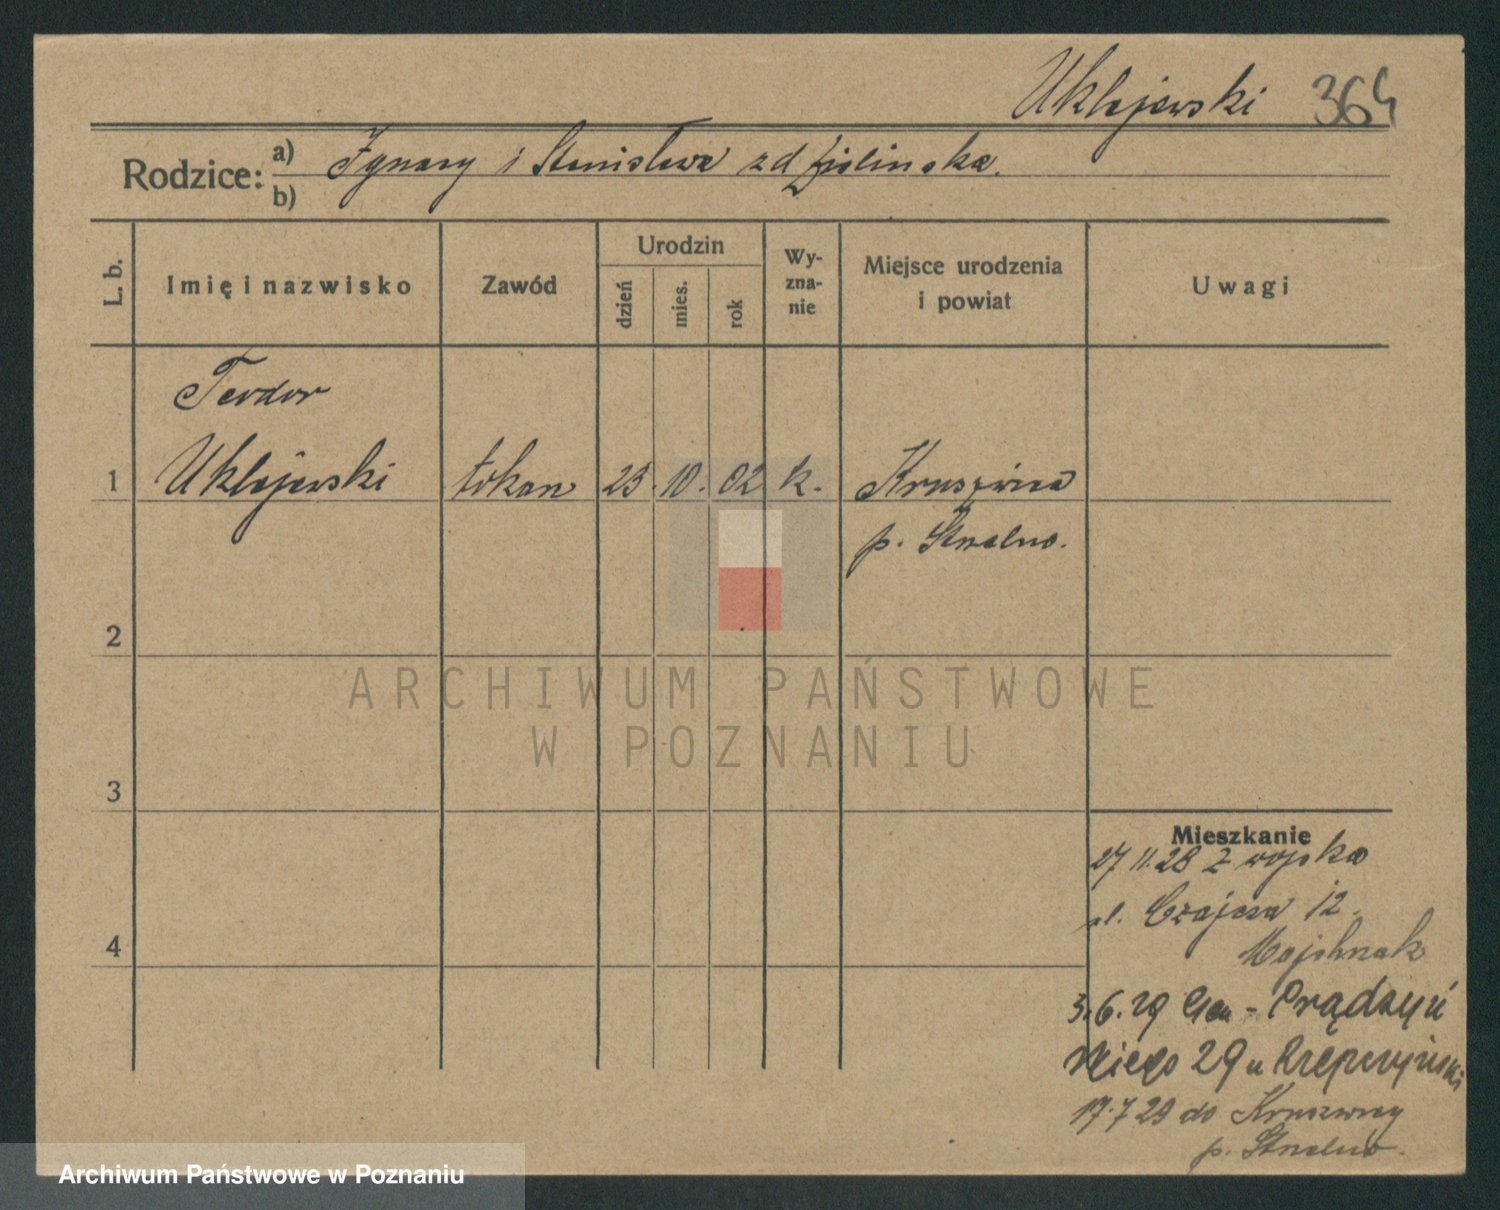 Uklejewski 364
Rodzice: a) Ignacy i Stanisława zd Zielinska.
b)
L. b.
Imię i nazwisko
Zawód
Urodzin
dzień
mies.
rok
Wy-
zna-
nie
Miejsce urodzenia
i powiat
Uwagi
Teodor
1 Uklejewski tokarz 23. 10. 02 k. Kruszwica
p. Strzelno.
2
3
4
Mieszkanie
27 11.28 z wojska
ul. Czajcza 12.
3.6.29 Gen - Prądzyń
skiego 29 u
17.7 29 do Kruszwicy
p. Strzelno.
ARCHIWUM PAŃSTWOWE
W POZNANIU
Archiwum Państwowe w Poznaniu